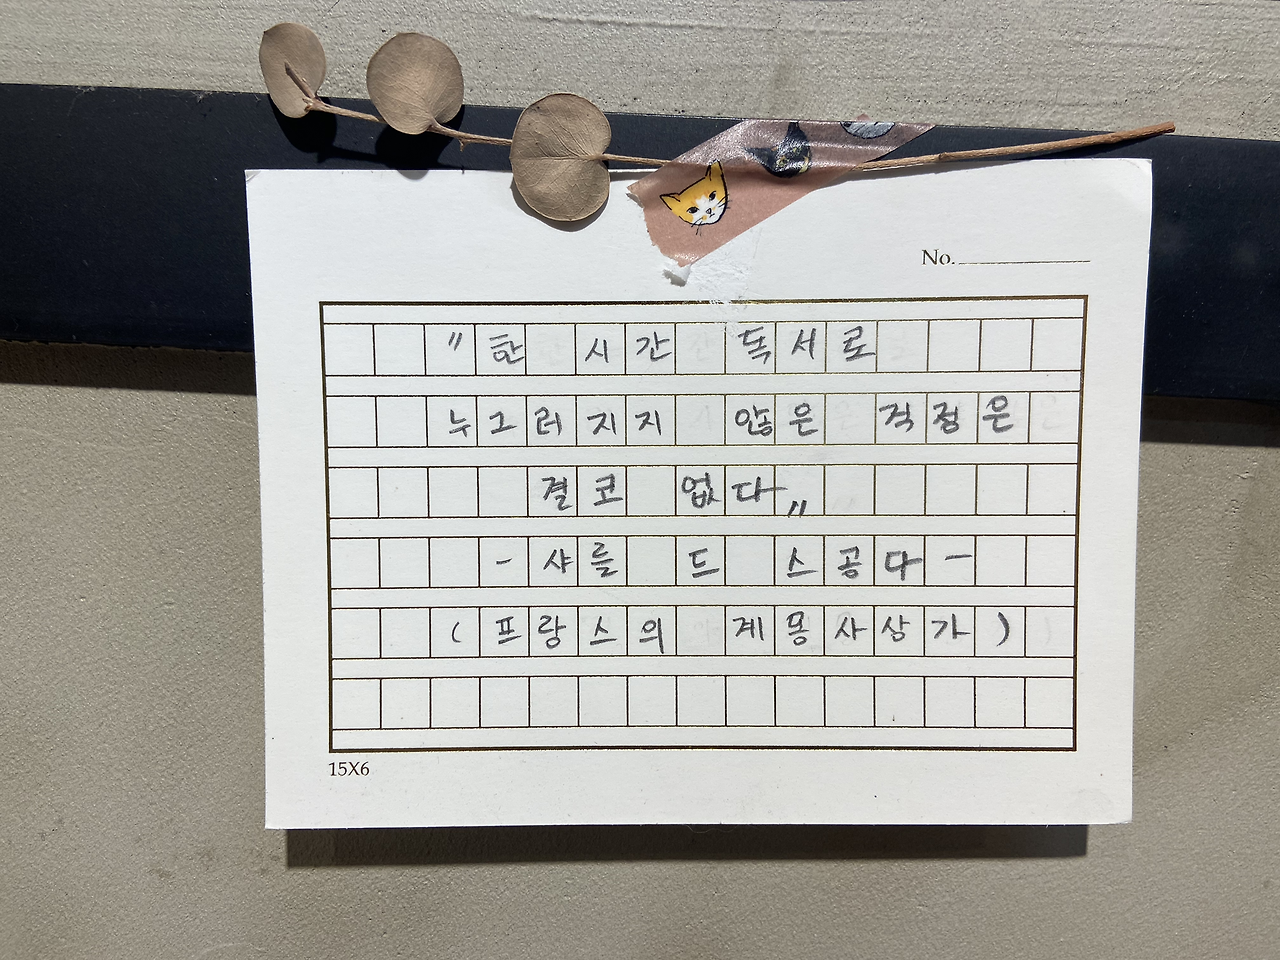 No.
"한 시간 독서로
누그러지지 않은 걱정은
결코 없다"
- 샤를 드 스공다 -
(프랑스의 계몽사상가)
15X6